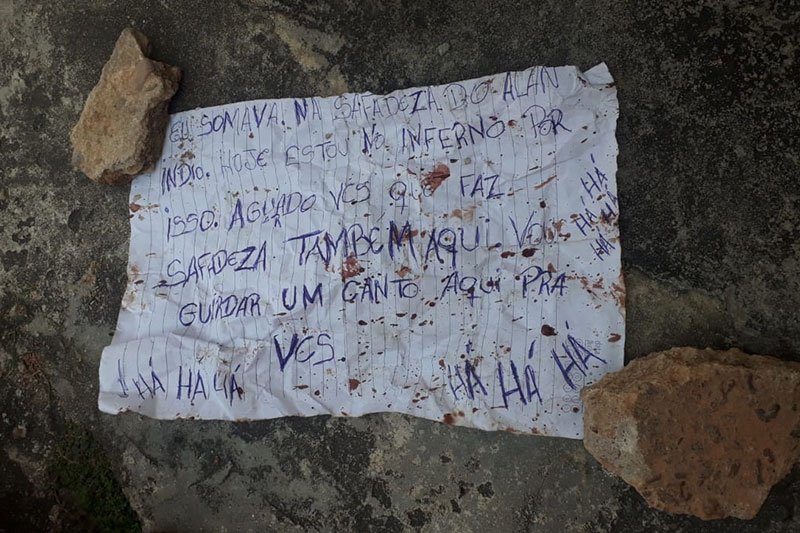 EU SOMAVA. NA SAFADEZA DO ALAN
INDIO. HOJE ESTOU NO INFERNO POR
ISSO. AGUADO VES QUE FAZ
SAFADEZA TAMBÉM AQUI. VOU
GUARDAR UM CANTO AQUI PRA
VES
HÁ HA HÁ
HÁ HÁ HÁ
HÁ HÁ
HÁ HÁ